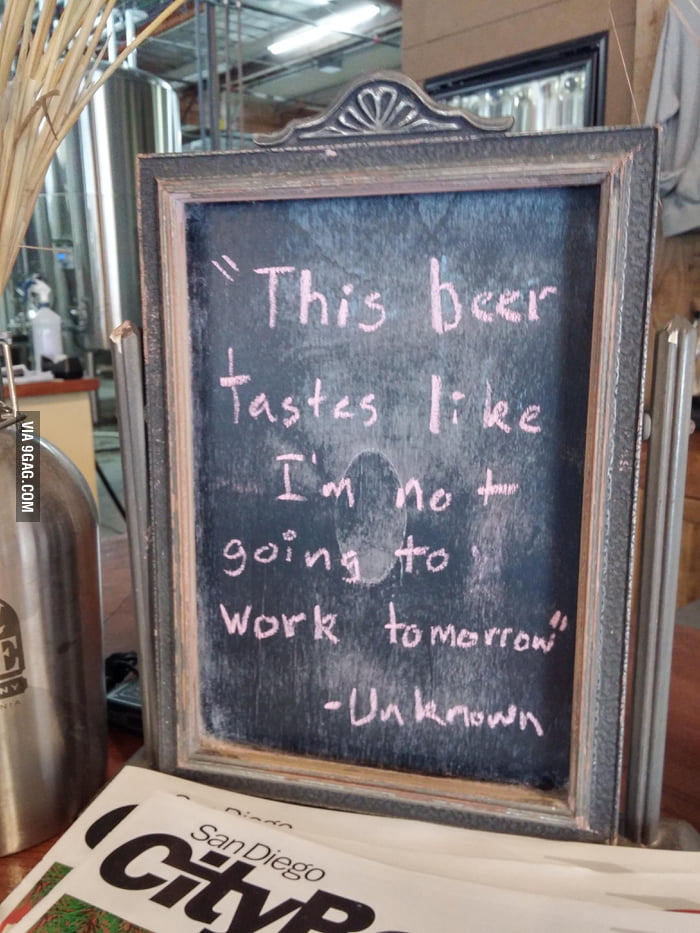 "This beer
tastes like
I'm not
going to
work tomorrow"
-Unknown
VIA 9GAG.COM
E
NY
NIA
San Diego
San Diego
City